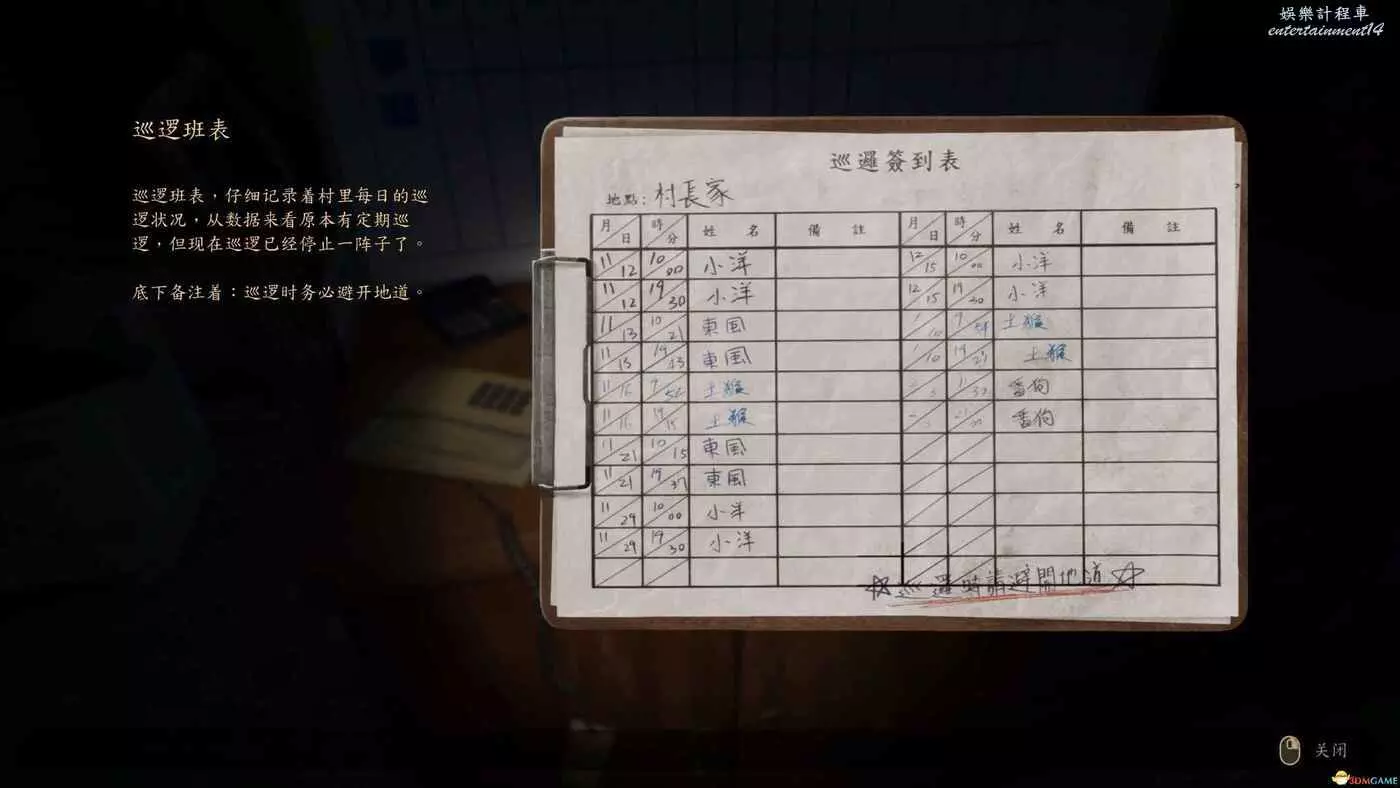 娛樂計程車
entertainment14
巡逻班表
巡逻班表，仔细记录着村里每日的巡
逻状况，从数据来看原本有定期巡
逻，但现在巡逻已经停止一阵子了。
底下备注着：巡逻时务必避开地道。
巡邏簽到表
地點：村長家
月 日 時 分 姓 名 備 註 月 日 時 分 姓 名 備 註
11 12 10 00 小洋 12 15 10 00 小洋
11 12 19 30 小洋 12 15 19 30 小洋
11 13 10 21 東風 土猴
11 13 19 43 東風 土猴
11 土猴 番狗
11 土猴 番狗
11 21 10 15 東風
11 21 19 37 東風
11 29 10 00 小洋
11 29 19 30 小洋
☆巡邏時請避開地道☆
关闭
3DMGAME